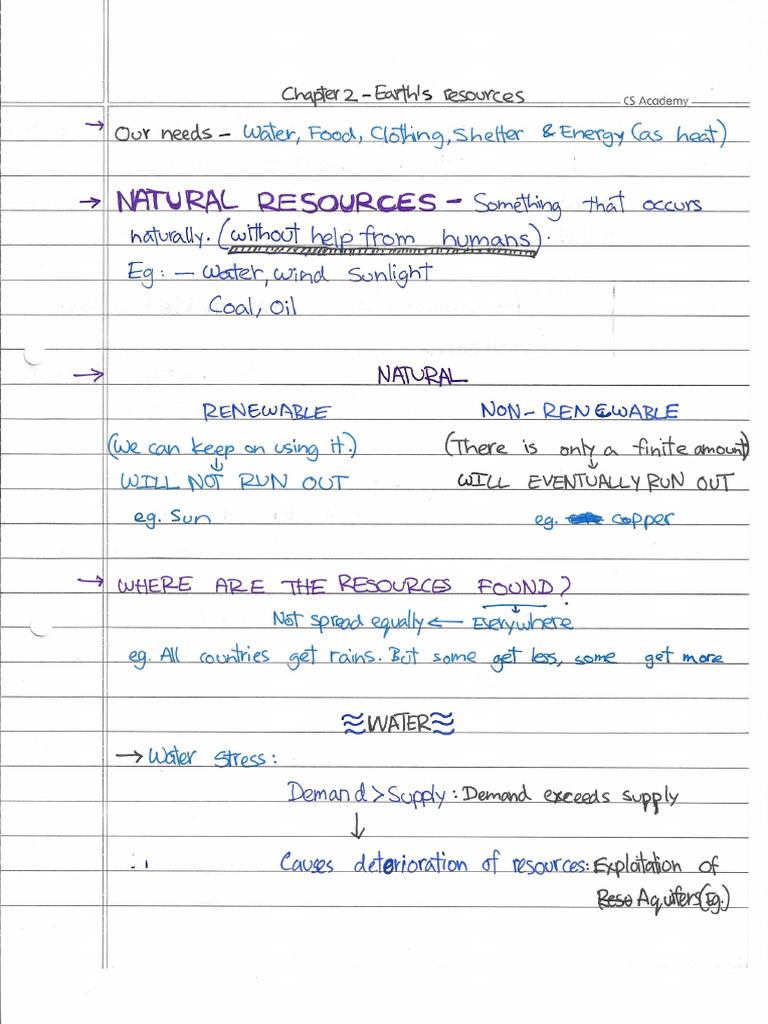 Chapter 2 - Earth's resources
CS Academy
→ Our needs - Water, Food, Clothing, Shelter & Energy (as heat)
→ NATURAL RESOURCES - Something that occurs
naturally. (without help from humans).
Eg: - Water, wind sunlight
Coal, Oil
→ NATURAL
RENEWABLE NON-RENEWABLE
(We can keep on using it.) (There is only a finite amount)
↓ ↓
WILL NOT RUN OUT WILL EVENTUALLY RUN OUT
eg. Sun eg. copper
→ WHERE ARE THE RESOURCES FOUND?
↓
Not spread equally ← Everywhere
eg. All countries get rains. But some get less, some get more
≈WATER≈
→ Water stress:
Demand > Supply : Demand exceeds supply
↓
Causes deterioration of resources: Exploitation of
Reso Aquifers (Eg.)